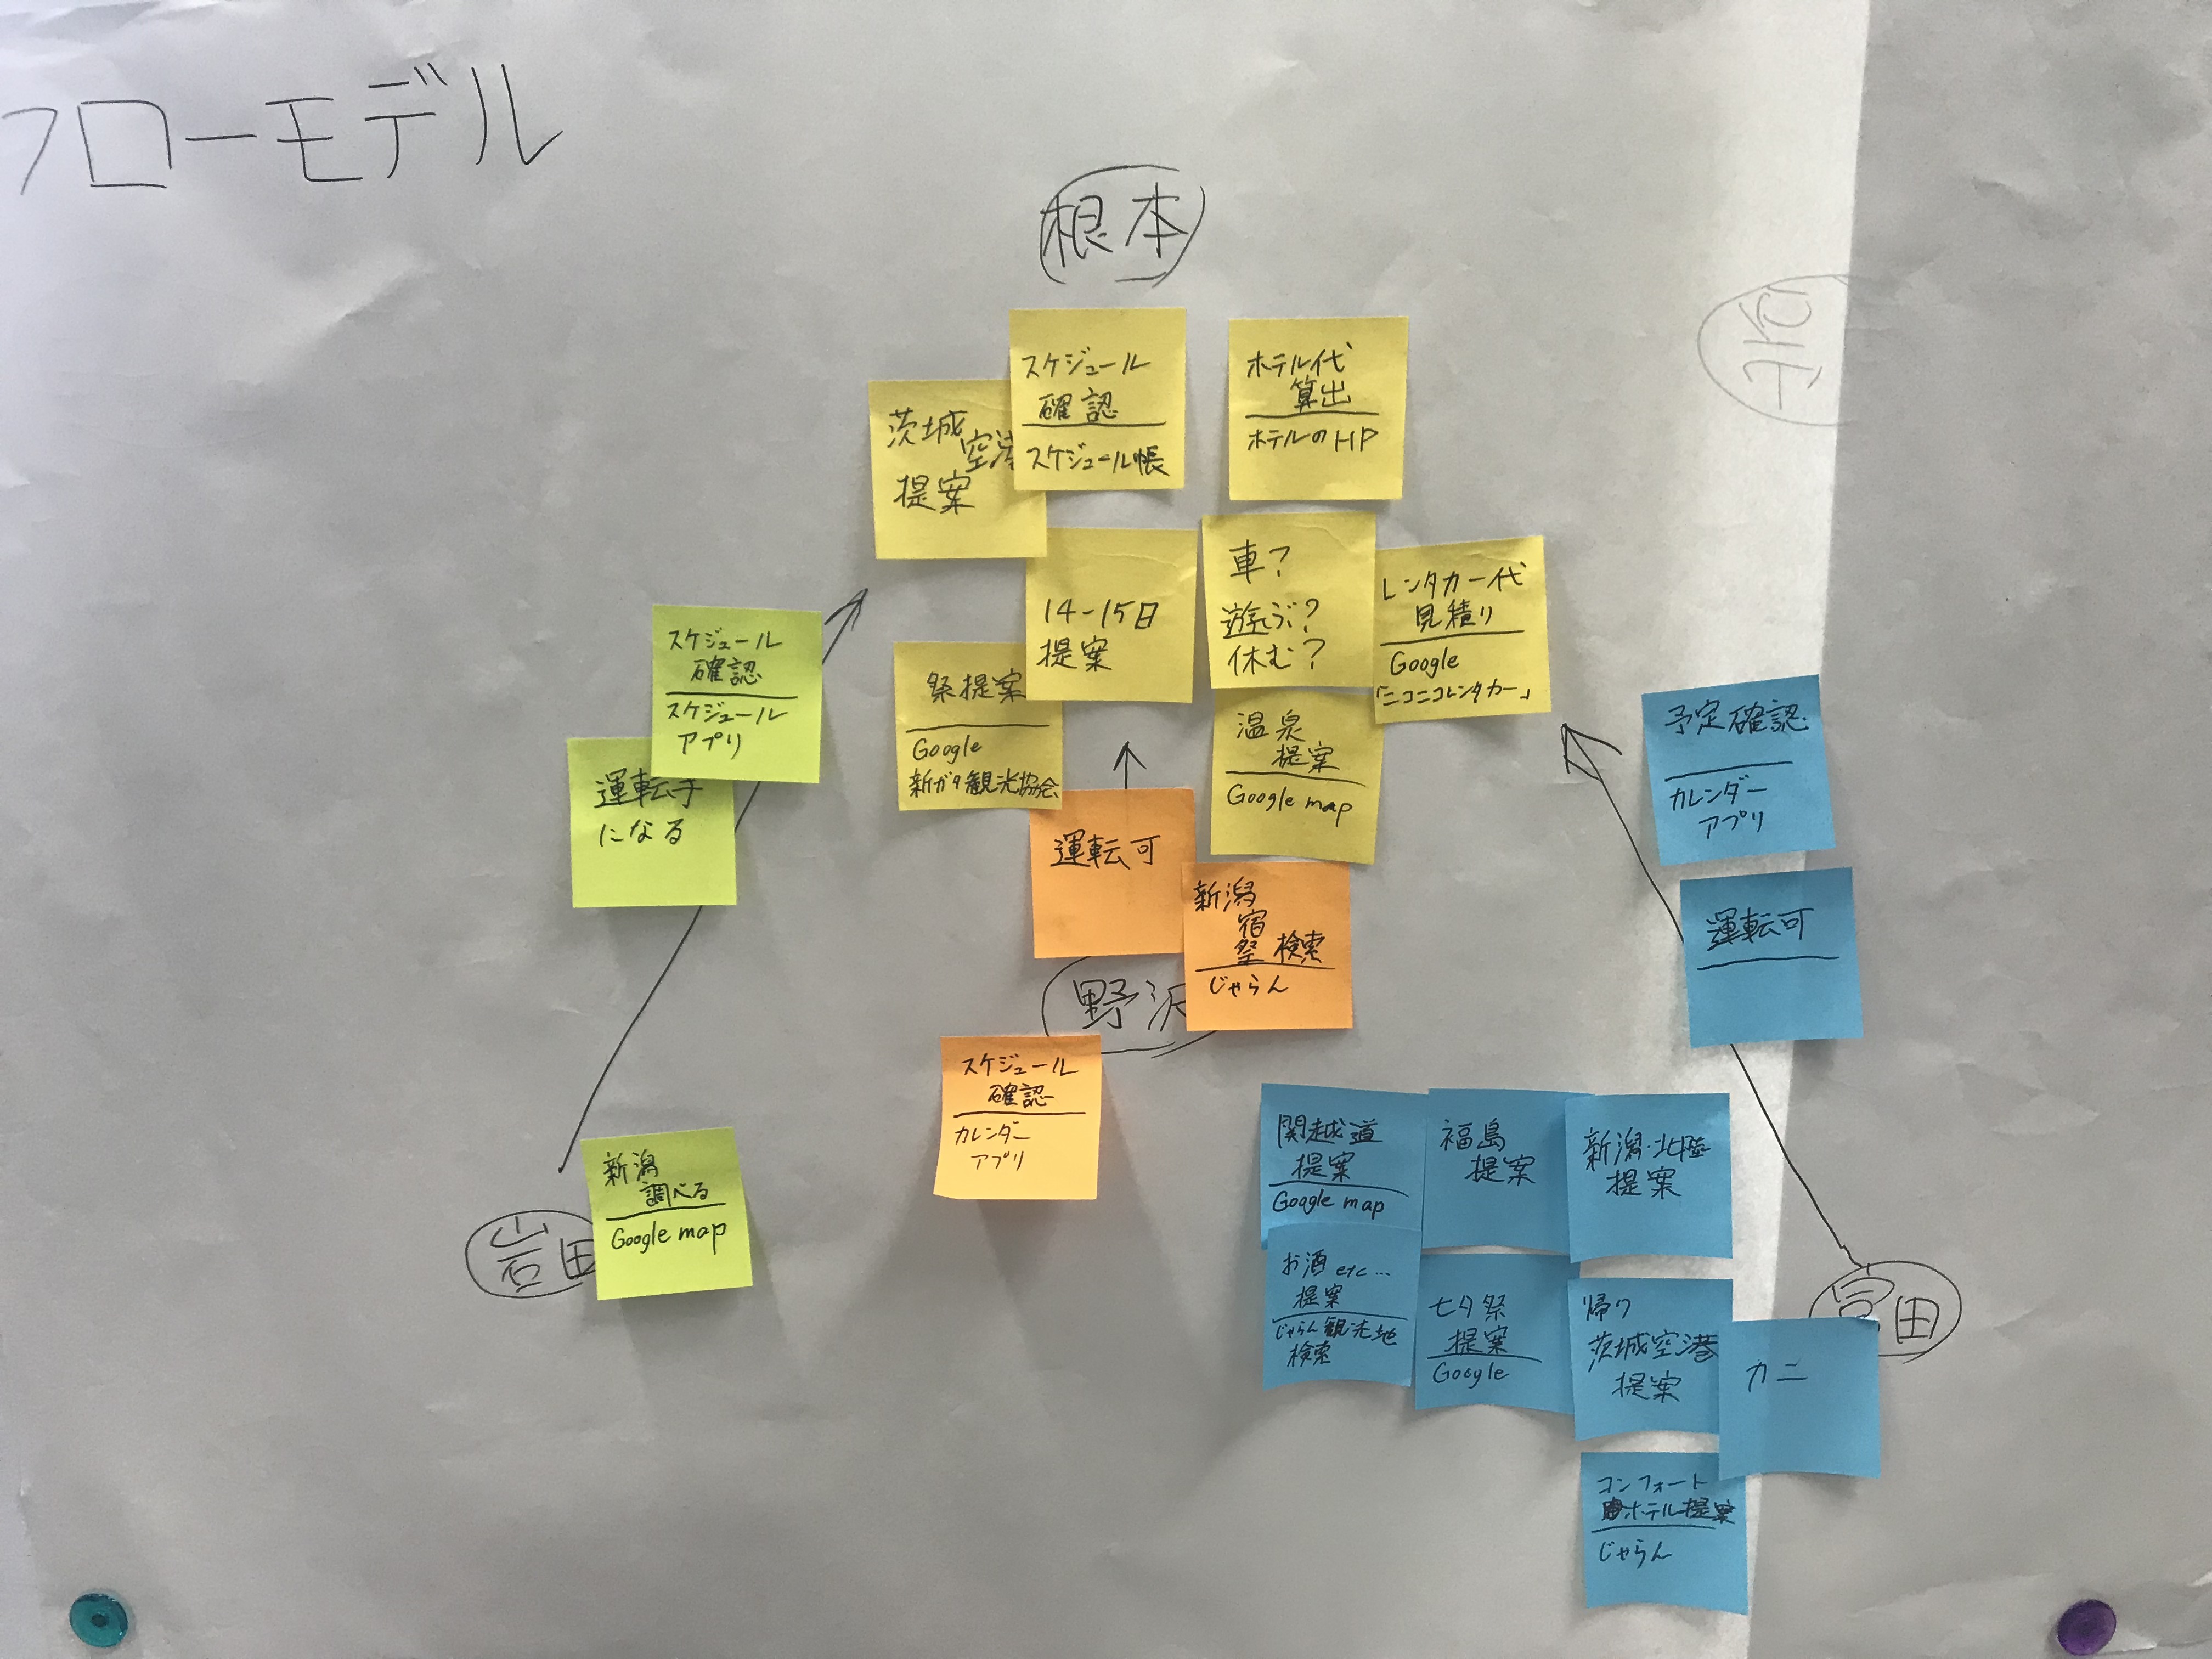 フローモデル
根本
スケジュール
確認
スケジュール帳
ホテル代
算出
ホテルのHP
茨城
空港
提案
14-15日
提案
車?
遊ぶ?
休む?
レンタカー代
見積り
Google
「ニコニコレンタカー」
祭提案
Google
新ガタ観光協会
温泉
提案
Google map
スケジュール
確認
スケジュール
アプリ
運転手
になる
新潟
調べる
Google map
岩田
運転可
新潟
宿
祭 検索
じゃらん
野沢
スケジュール
確認
カレンダー
アプリ
予定確認
カレンダー
アプリ
運転可
関越道
提案
Google map
福島
提案
新潟・北陸
提案
お酒 etc...
提案
じゃらん観光地
検索
七夕祭
提案
Google
帰り
茨城空港
提案
カニ
コンフォート
ホテル提案
じゃらん
田